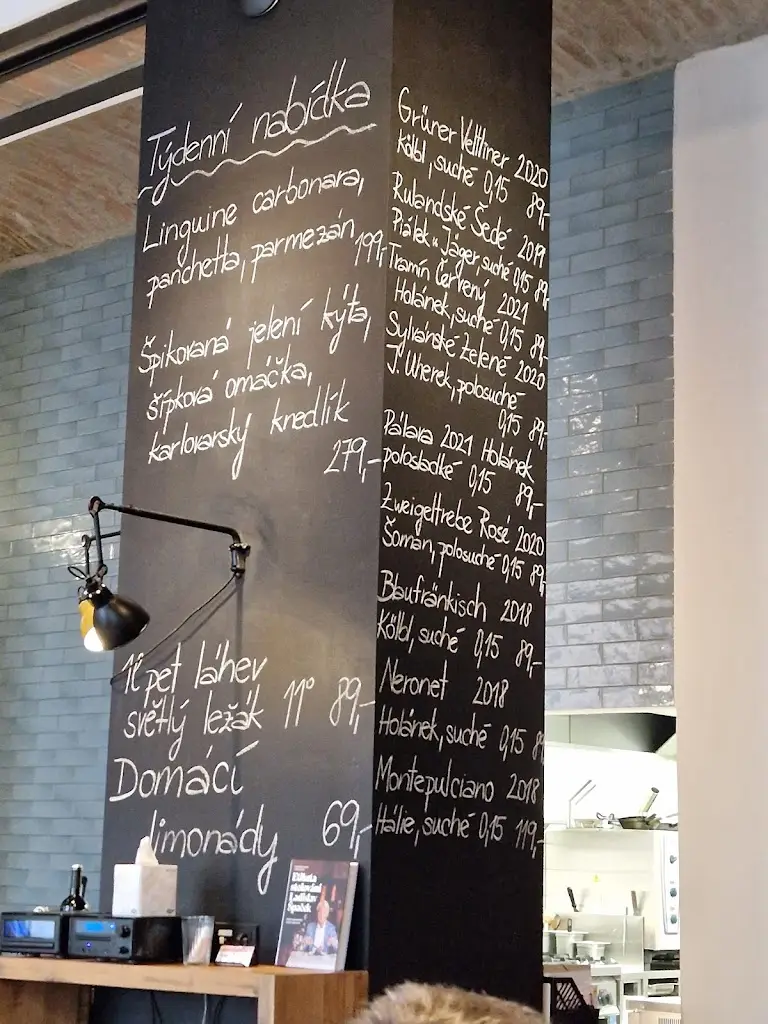 Týdenní nabídka
Linguine carbonara,
panchetta, parmezán 199,-
Špikovaná jelení kýta,
šípková omáčka,
karlovarský knedlík
279,-
1l pet láhev
světlý ležák 11° 89,-
Domácí
limonády 69,-
Grüner Veltliner 2020
Kölbl, suché 0,15 89,-
Rulandské Šedé 2019
Piálek u. Jäger, suché 0,15 89,-
Tramín Červený 2021
Holánek, suché 0,15 89,-
Sylvánské zelené 2020
J. Uherek, polosuché
0,15 89,-
Pálava 2021 Holánek
polosladké 0,15 89,-
Zweigeltrebe Rosé 2020
Šoman, polosuché 0,15 89,-
Blaufränkisch 2018
Kölbl, suché 0,15 89,-
Neronet 2018
Holánek, suché 0,15 89
Montepulciano 2018
Itálie, suché 0,15 119,-
Etiketa
stolování
Ladislav
Špaček